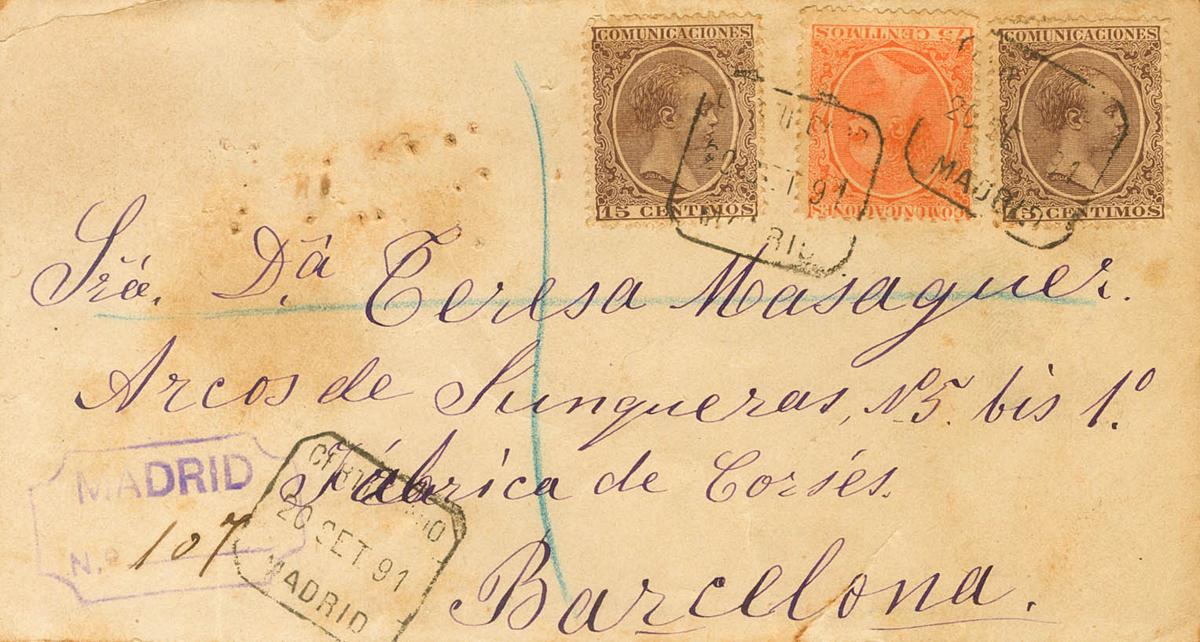 COMUNICACIONES
15 CENTIMOS
75 CENTIMOS
COMUNICACIONES
COMUNICACIONES
15 CENTIMOS
20 SET 91
MADRID
MADRID
Sra. D.ª Teresa Masaguer.
Arcos de Junqueras, N.5. bis 1.º
Fábrica de Corsés.
Barcelona.
MADRID
N.º 107
CERTIFICADO
20 SET 91
MADRID